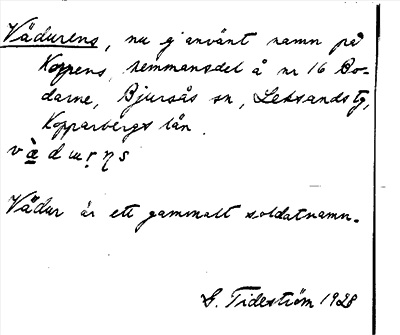 Vädurens, nu ej använt namn på
Koppens, hemmansdel å nr 16 Bo-
darne, Bjursås sn, Leksands tg,
Kopparbergs län.
v ä̀ d ɯ r̥ n̥ s
Vädur är ett gammalt soldatnamn.
G. Tideström 1928